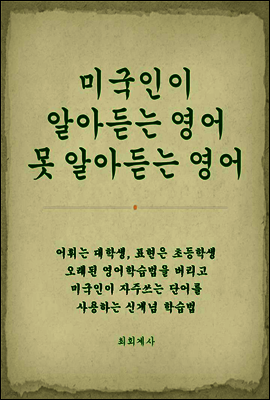 미국인이
알아듣는 영어
못 알아듣는 영어
어휘는 대학생, 표현은 초등학생
오래된 영어학습법을 버리고
미국인이 자주쓰는 단어를
사용하는 신개념 학습법
최회계사